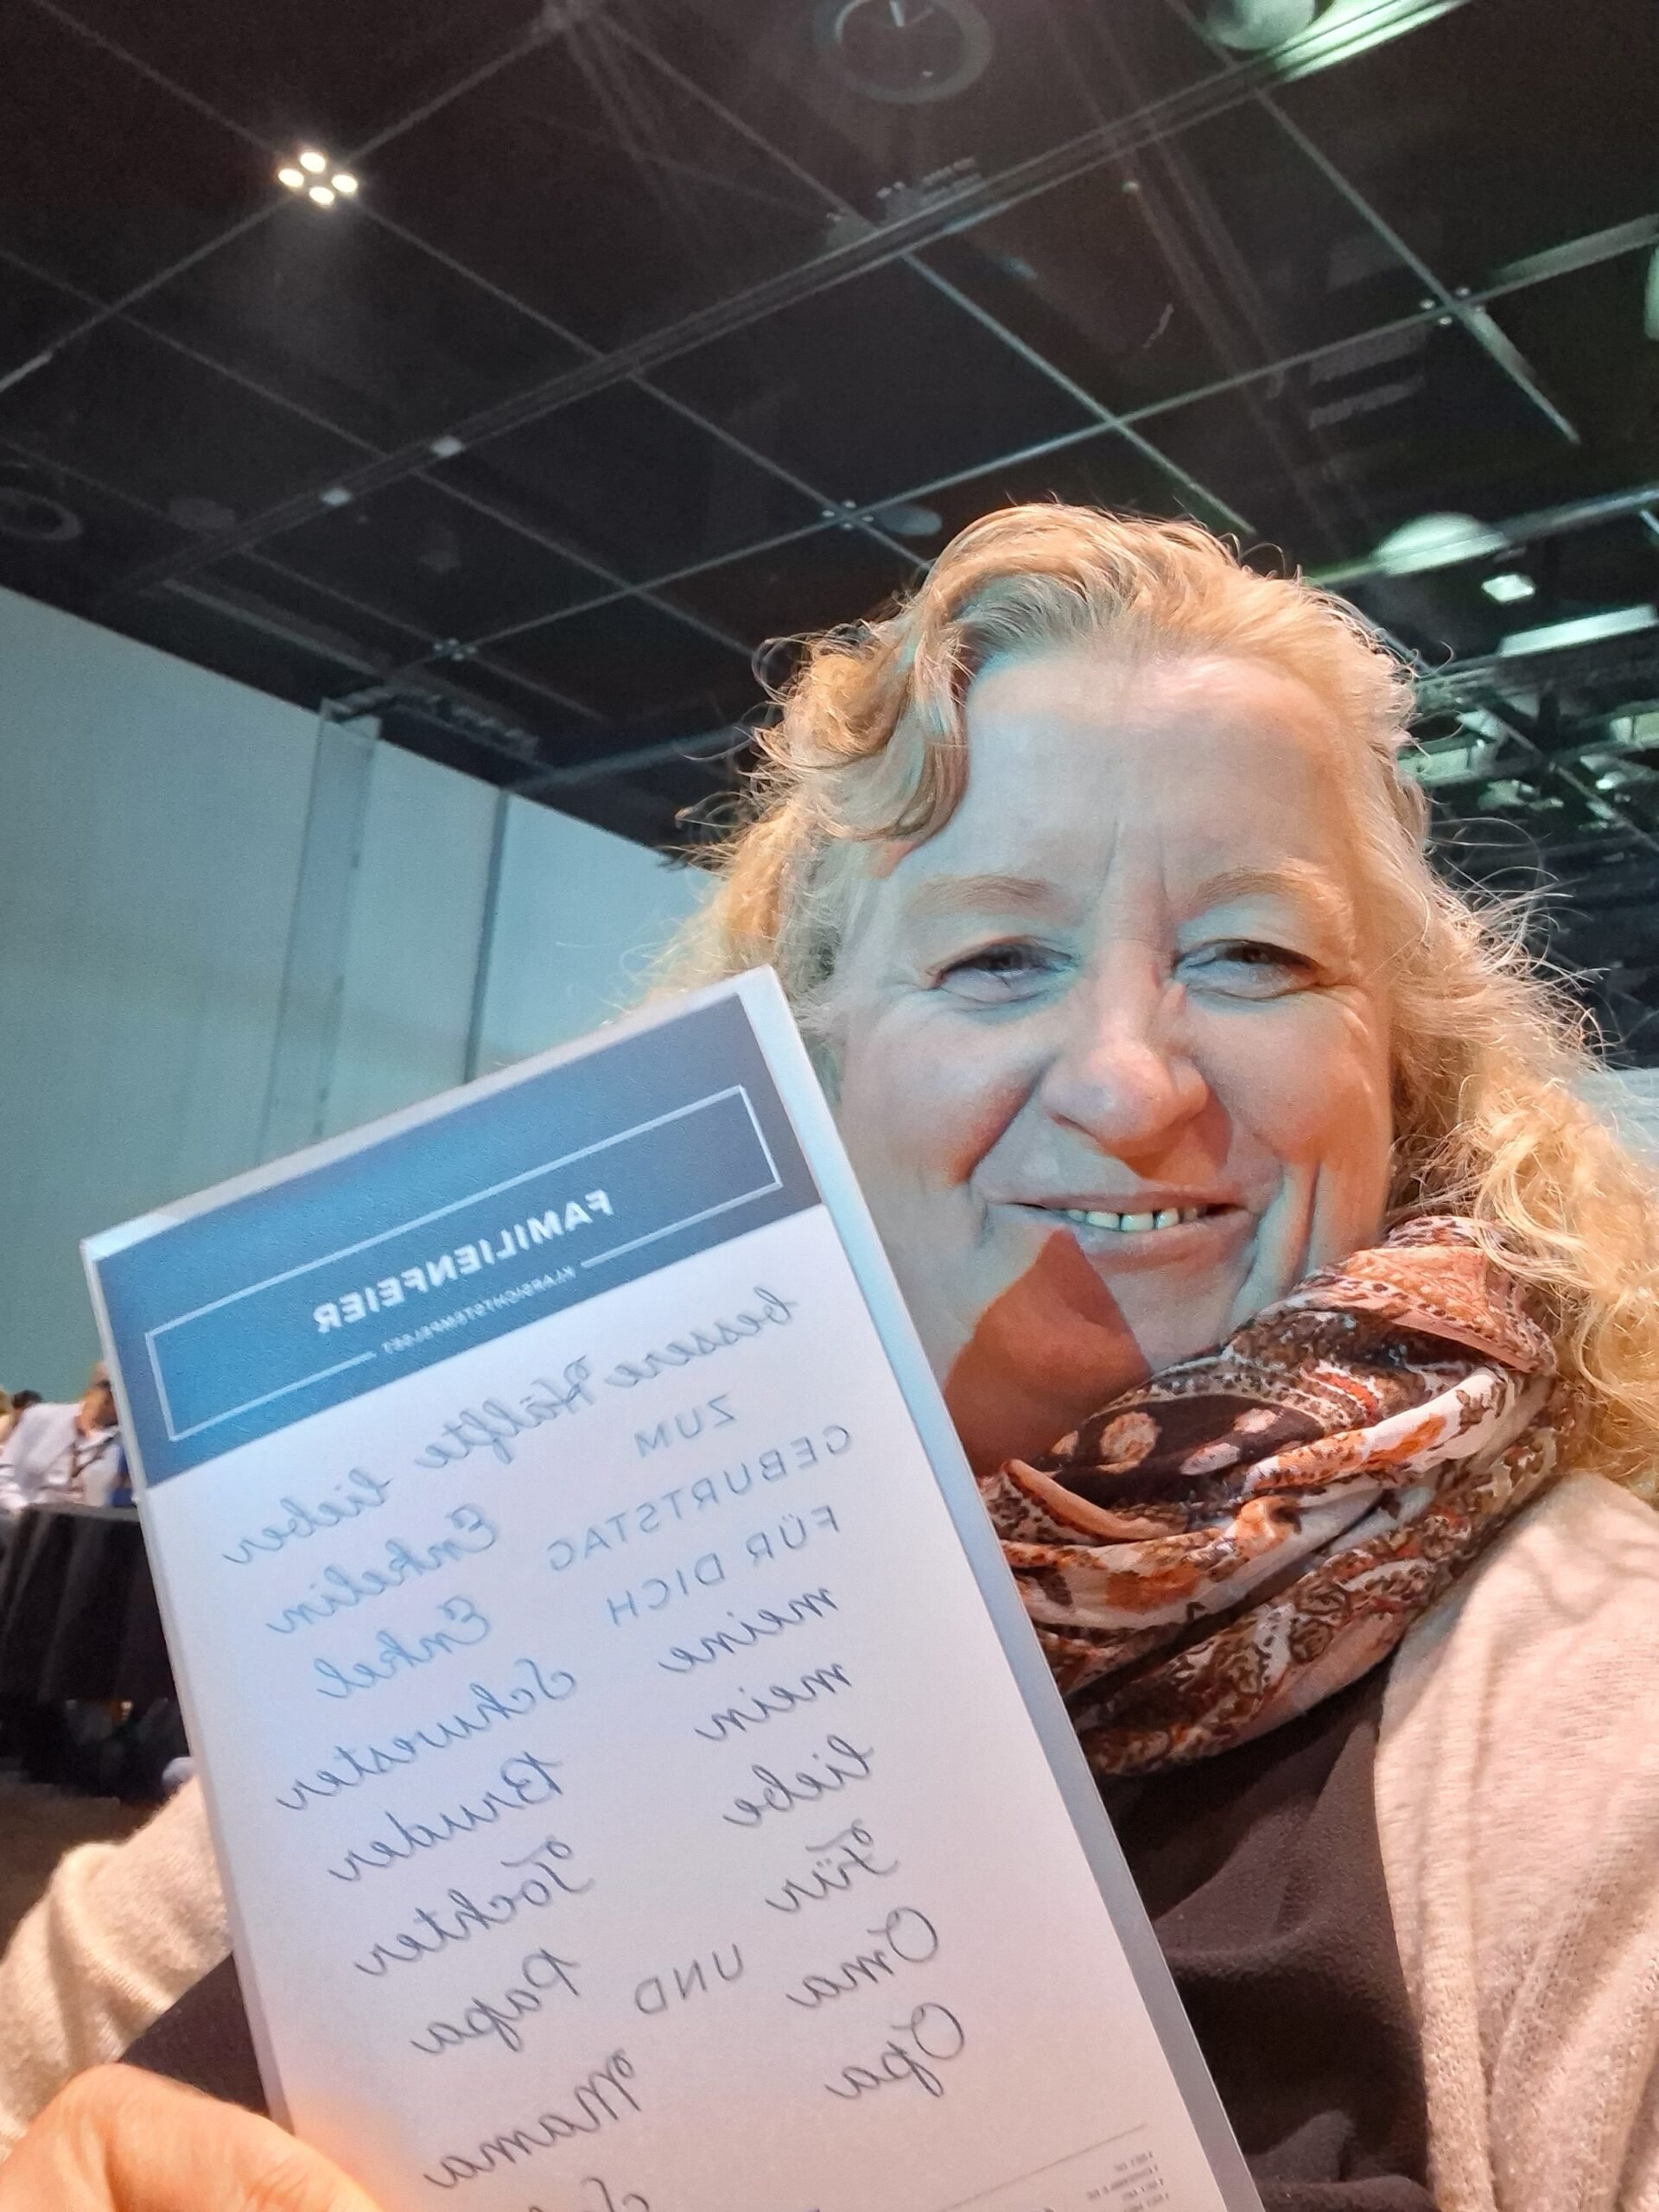 FAMILIENFEIER
KLARSICHTSTEMPELSET
bessere Hälfte lieber
ZUM
GEBURTSTAG
Enkelin
FÜR DICH
Enkel
meine
Schwester
mein
Bruder
liebe
Tochter
Für
Papa
UND
Oma
Mama
Opa